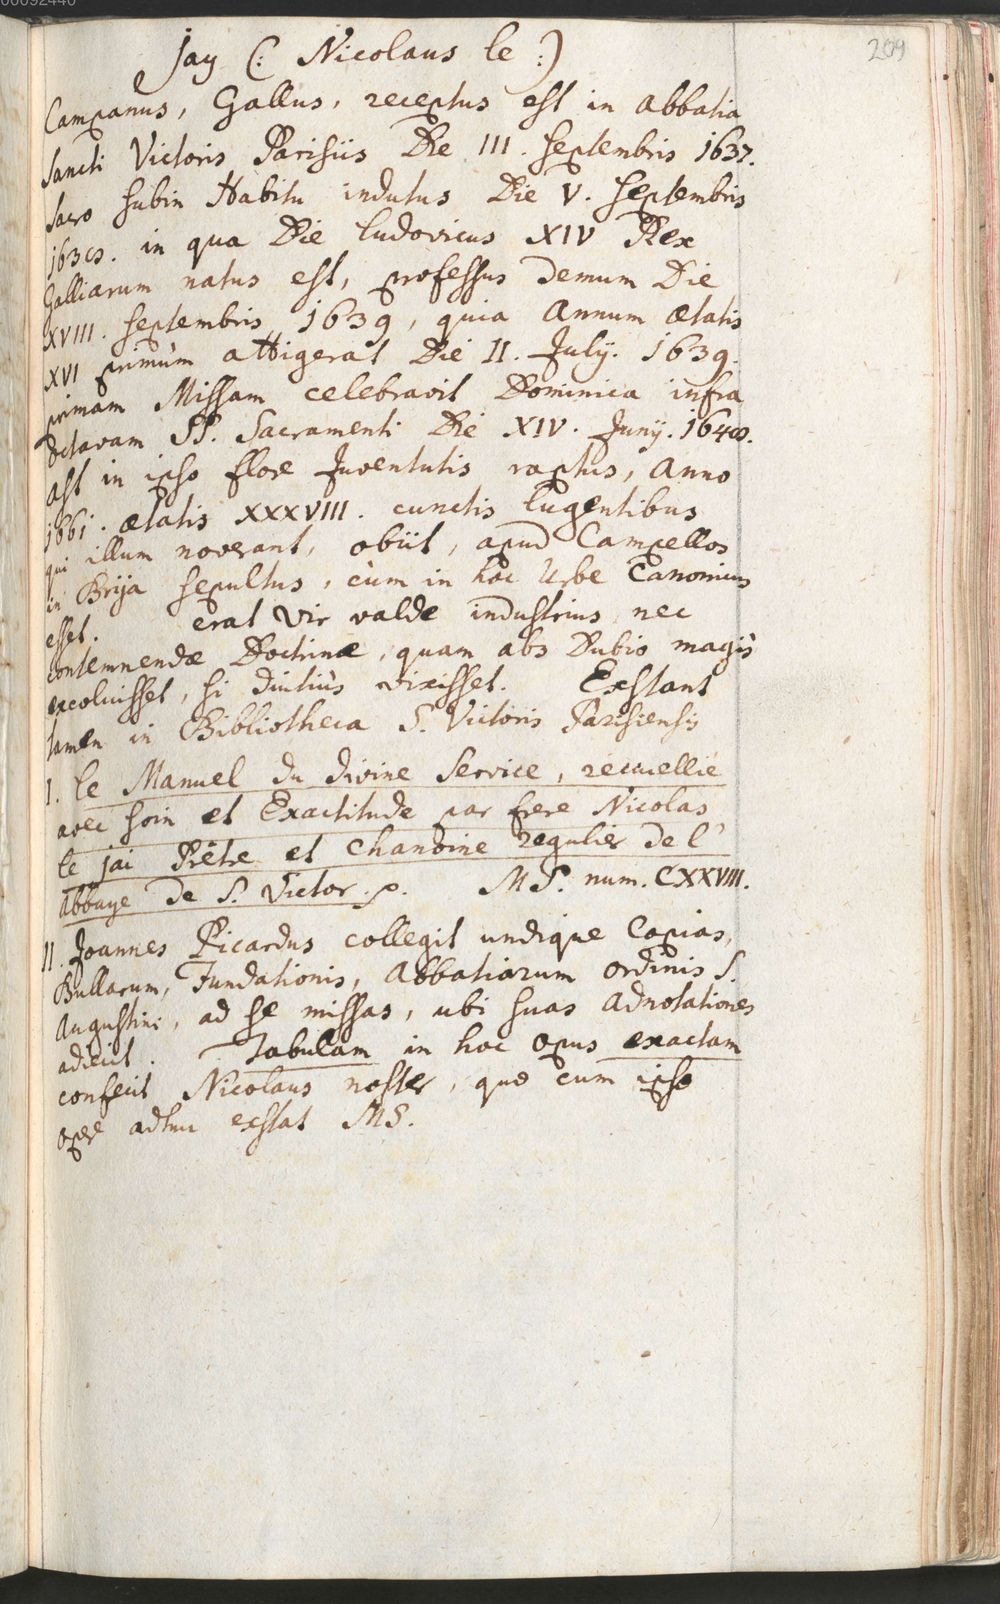 00092440
209
Jay (: Nicolaus le :)
Campanus, Gallus, receptus est in Abbatia
Sancti Victoris Parisiis Die III. Septembris 1637.
Sacro subin Habitu indutus Die V. Septembris
1638. in qua Die Ludovicus XIV Rex
Galliarum natus est, professus demum Die
XVIII. Septembris 1639, quia Annum ætatis
XVI primùm attigerat Die II. July. 1639.
primam Missam celebravit Dominica infra
octavam SS. Sacramenti Die XIV. Junij. 1648.
ast in ipso flore Juventutis raptus, Anno
1661. ætatis XXXVIII. cunctis lugentibus
qui illum noverant, obiit, apud Campellos
in Brija sepultus, cùm in hac Urbe Canonicus
esset. erat vir valde industrius, nec
contemnendæ Doctrinæ, quam abs Dubio magis
excoluisset, si diutiùs vixisset. Exstant
tamen in Bibliotheca S. Victoris Parisiensis
I. le Manuel du divine Service, recuellie
avec soin et Exactitude par frere Nicolas
le jai Prêtre et Chanoine regulier de l'
Abbaye de S. Victor. p. MS. num. CXXVIII.
II. Joannes Picardus collegit undique Copias,
Bullarum, Fundationis, Abbatiarum ordinis S.
Augustini, ad se missas, ubi suas Adnotationes
adiecit. Tabulam in hoc opus exactam
confecit Nicolaus noster, quæ cum ipso
opere adhuc exstat MS.